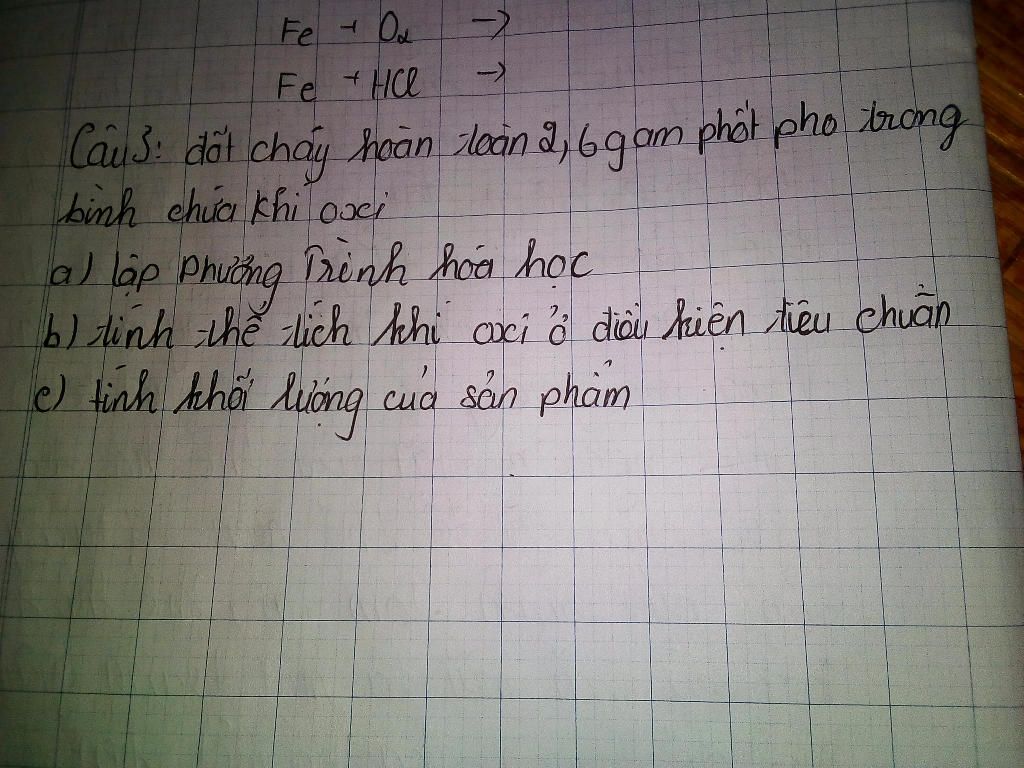 Fe + O2 →
Fe + HCl →
Câu 3: đốt cháy hoàn toàn 2,6 gam phốt pho trong
bình chứa khí oxi
a) lập phương Trình hoá học
b) tính thể tích khí oxi ở điều kiện tiêu chuẩn
c) tính khối lượng của sản phẩm